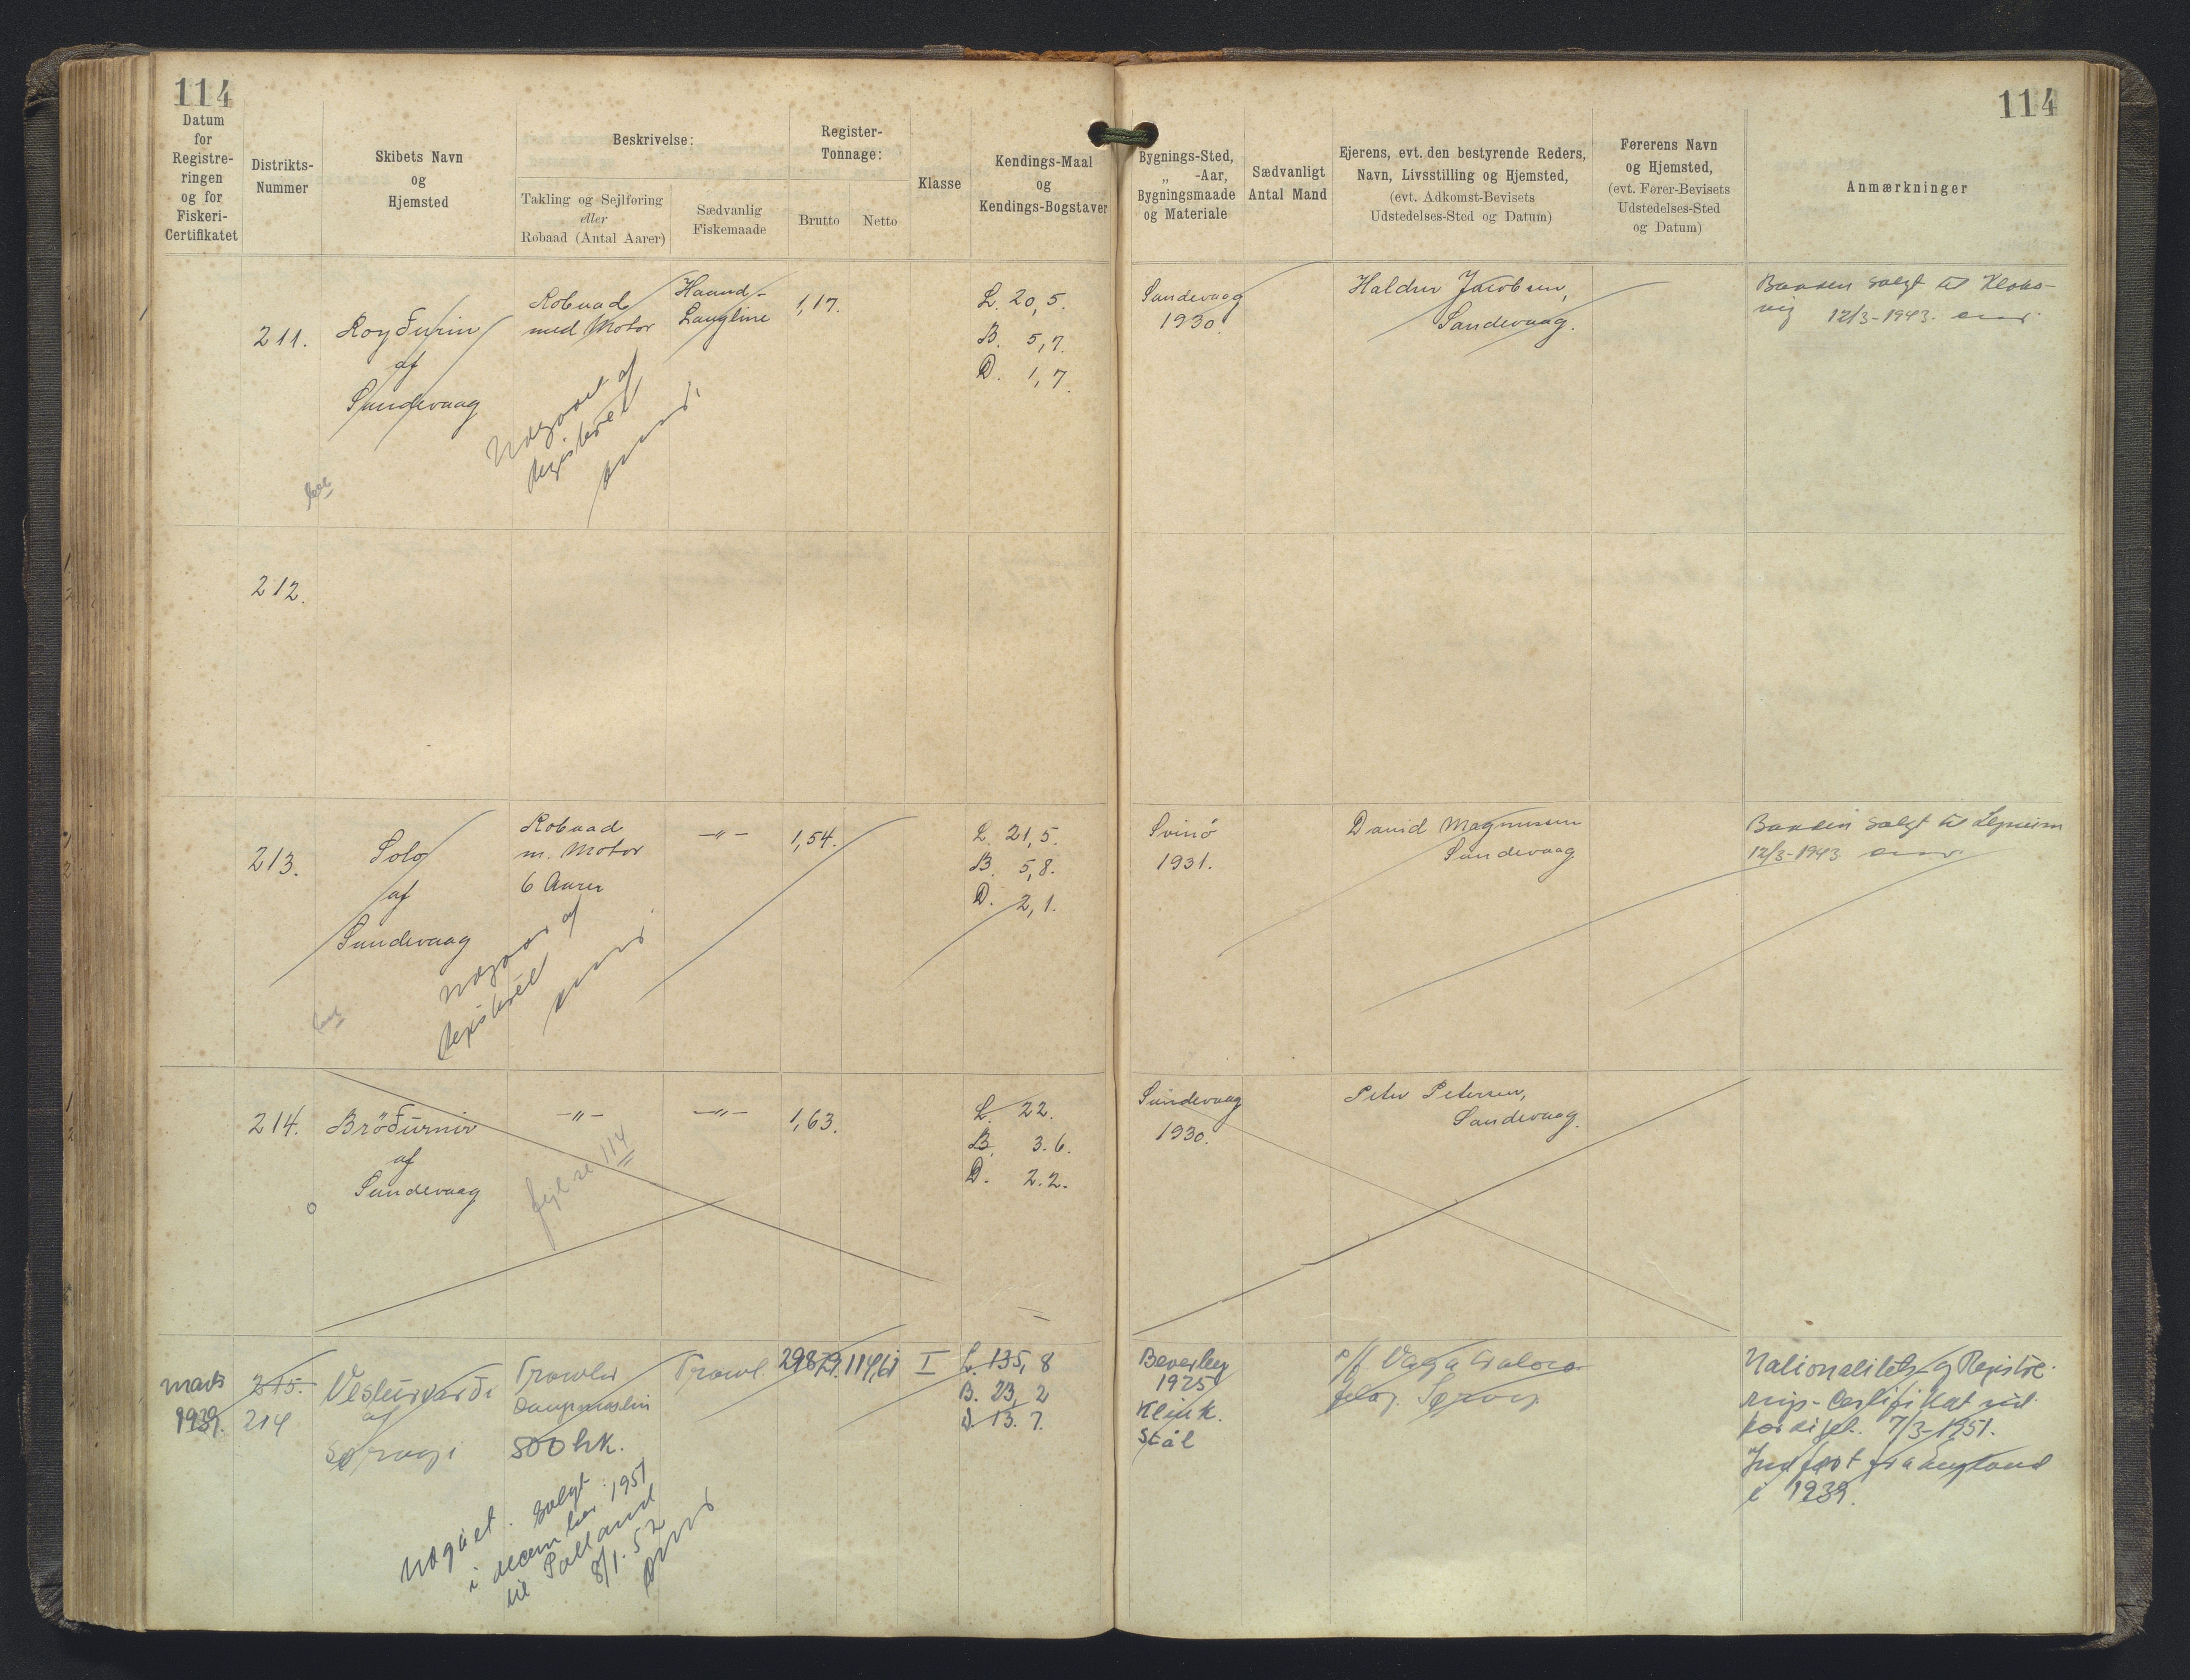 114
114
Datum
for
Registre-
ringen
og for
Fiskeri-
Certifikatet
Distrikts-
Nummer
Skibets Navn
og
Hjemsted
Beskrivelse:
Takling og Sejlføring
eller
Robaad (Antal Aarer)
Sædvanlig
Fiskemaade
Register-
Tonnage:
Brutto
Netto
Klasse
Kendings-Maal
og
Kendings-Bogstaver
Bygnings-Sted,
„ -Aar,
Bygningsmaade
og Materiale
Sædvanligt
Antal Mand
Ejerens, evt. den bestyrende Reders,
Navn, Livsstilling og Hjemsted,
(evt. Adkomst-Bevisets
Udstedelses-Sted og Datum)
Førerens Navn
og Hjemsted,
(evt. Fører-Bevisets
Udstedelses-Sted
og Datum)
Anmærkninger
211.
Royðurin
af
Sandevaag
Robaad
med Motor
Haand-
Langline
1,17.
L. 20,5.
B. 5,7.
D. 1,7.
Sandevaag
1930.
Haldur Jacobsen,
Sandevaag.
Baaden solgt til Klaks-
vig 12/3-1943.
Udgaaet af
Registeret
212.
213.
Solo
af
Sandevaag
Robaad
m. Motor
6 Aarer
-"-
1,54.
L. 21,5.
B. 5,8.
D. 2,1.
Svinö
1931.
David Magnussen
Sandevaag
Baaden solgt til
12/3-1943
Udgaaet af
Registeret
214.
Bröðurnir
af
Sandevaag
-"-
-"-
1,63.
L. 22.
B. 3.6.
D. 2.2.
Sandevaag
1930.
Peter Petersen,
Sandevaag.
114
Marts
1939.
215.
214
Vesturvarði
af
Sørvagi
Trawler
Dampmaskin
800 hk.
Trawl
298,79.
114,61
I
L. 135,8
B. 23,2
D. 13.7.
Beverley
1925
Klink.
Stål
p/f. Vága
felag. Sørvág.
Nationalitets og Registre-
rings-Certifikat ud-
færdiget. 7/3-1951.
Indført fra England
i 1939.
Udgået. solgt
i december 1951
til
8/1.52